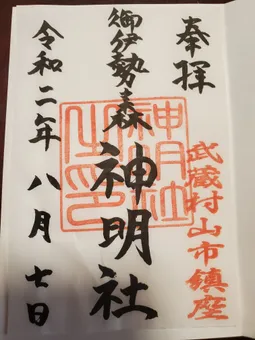 奉拝
武蔵村山市鎮座
御伊勢の森
神明社
神明社之印
令和二年八月七日